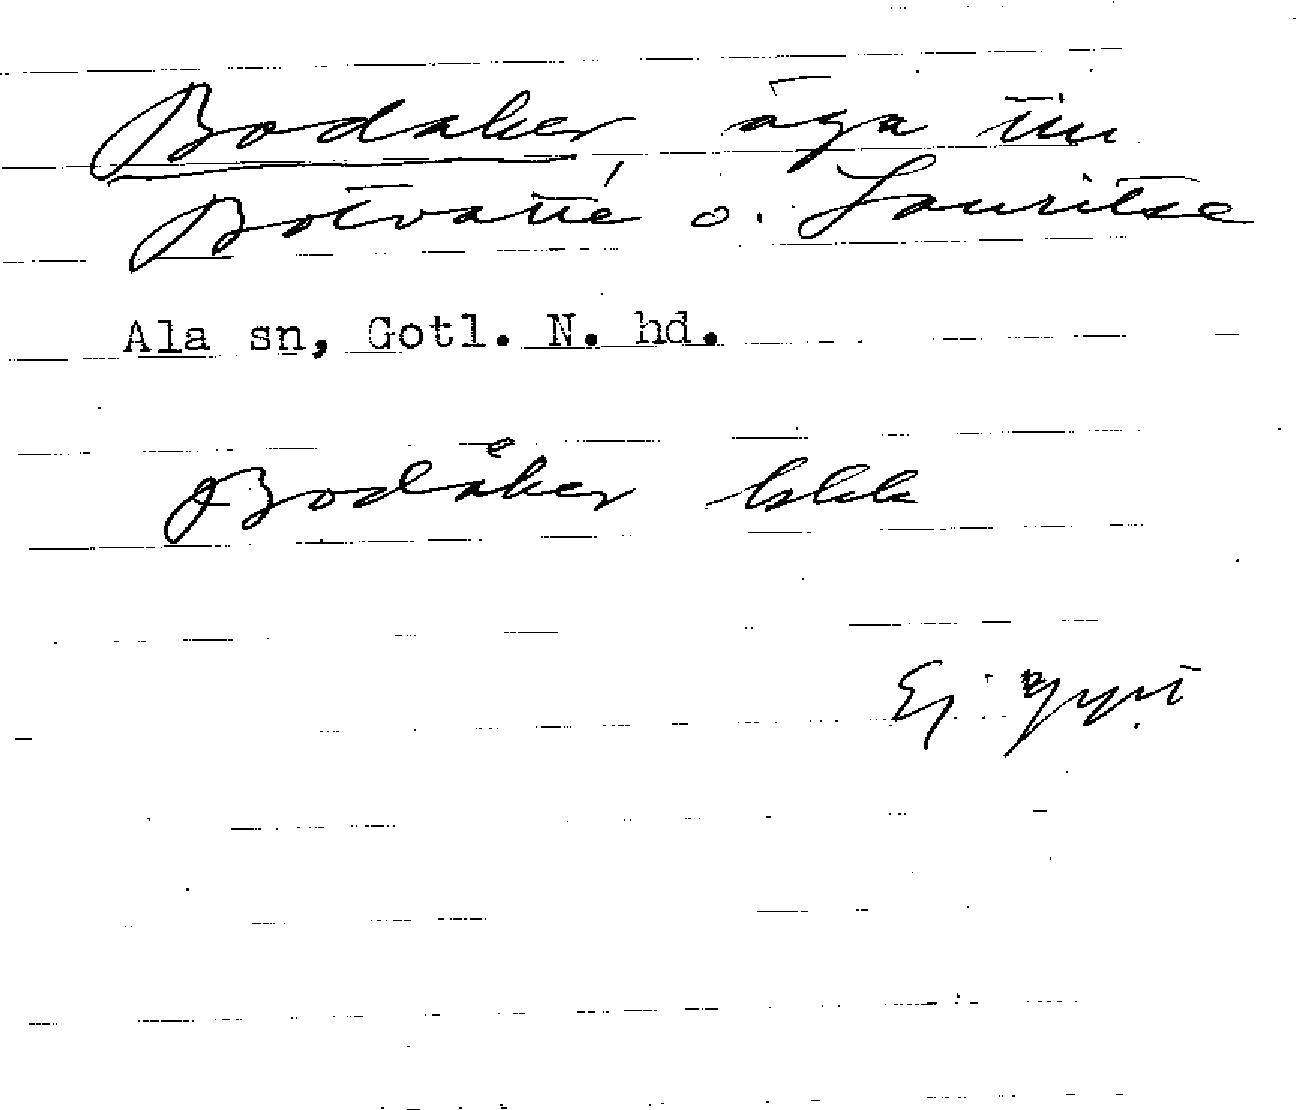 Bodaker äga till
Botvatte o. Lauritse
Ala sn, Gotl. N. hd.
Bodåker bkk
Ej